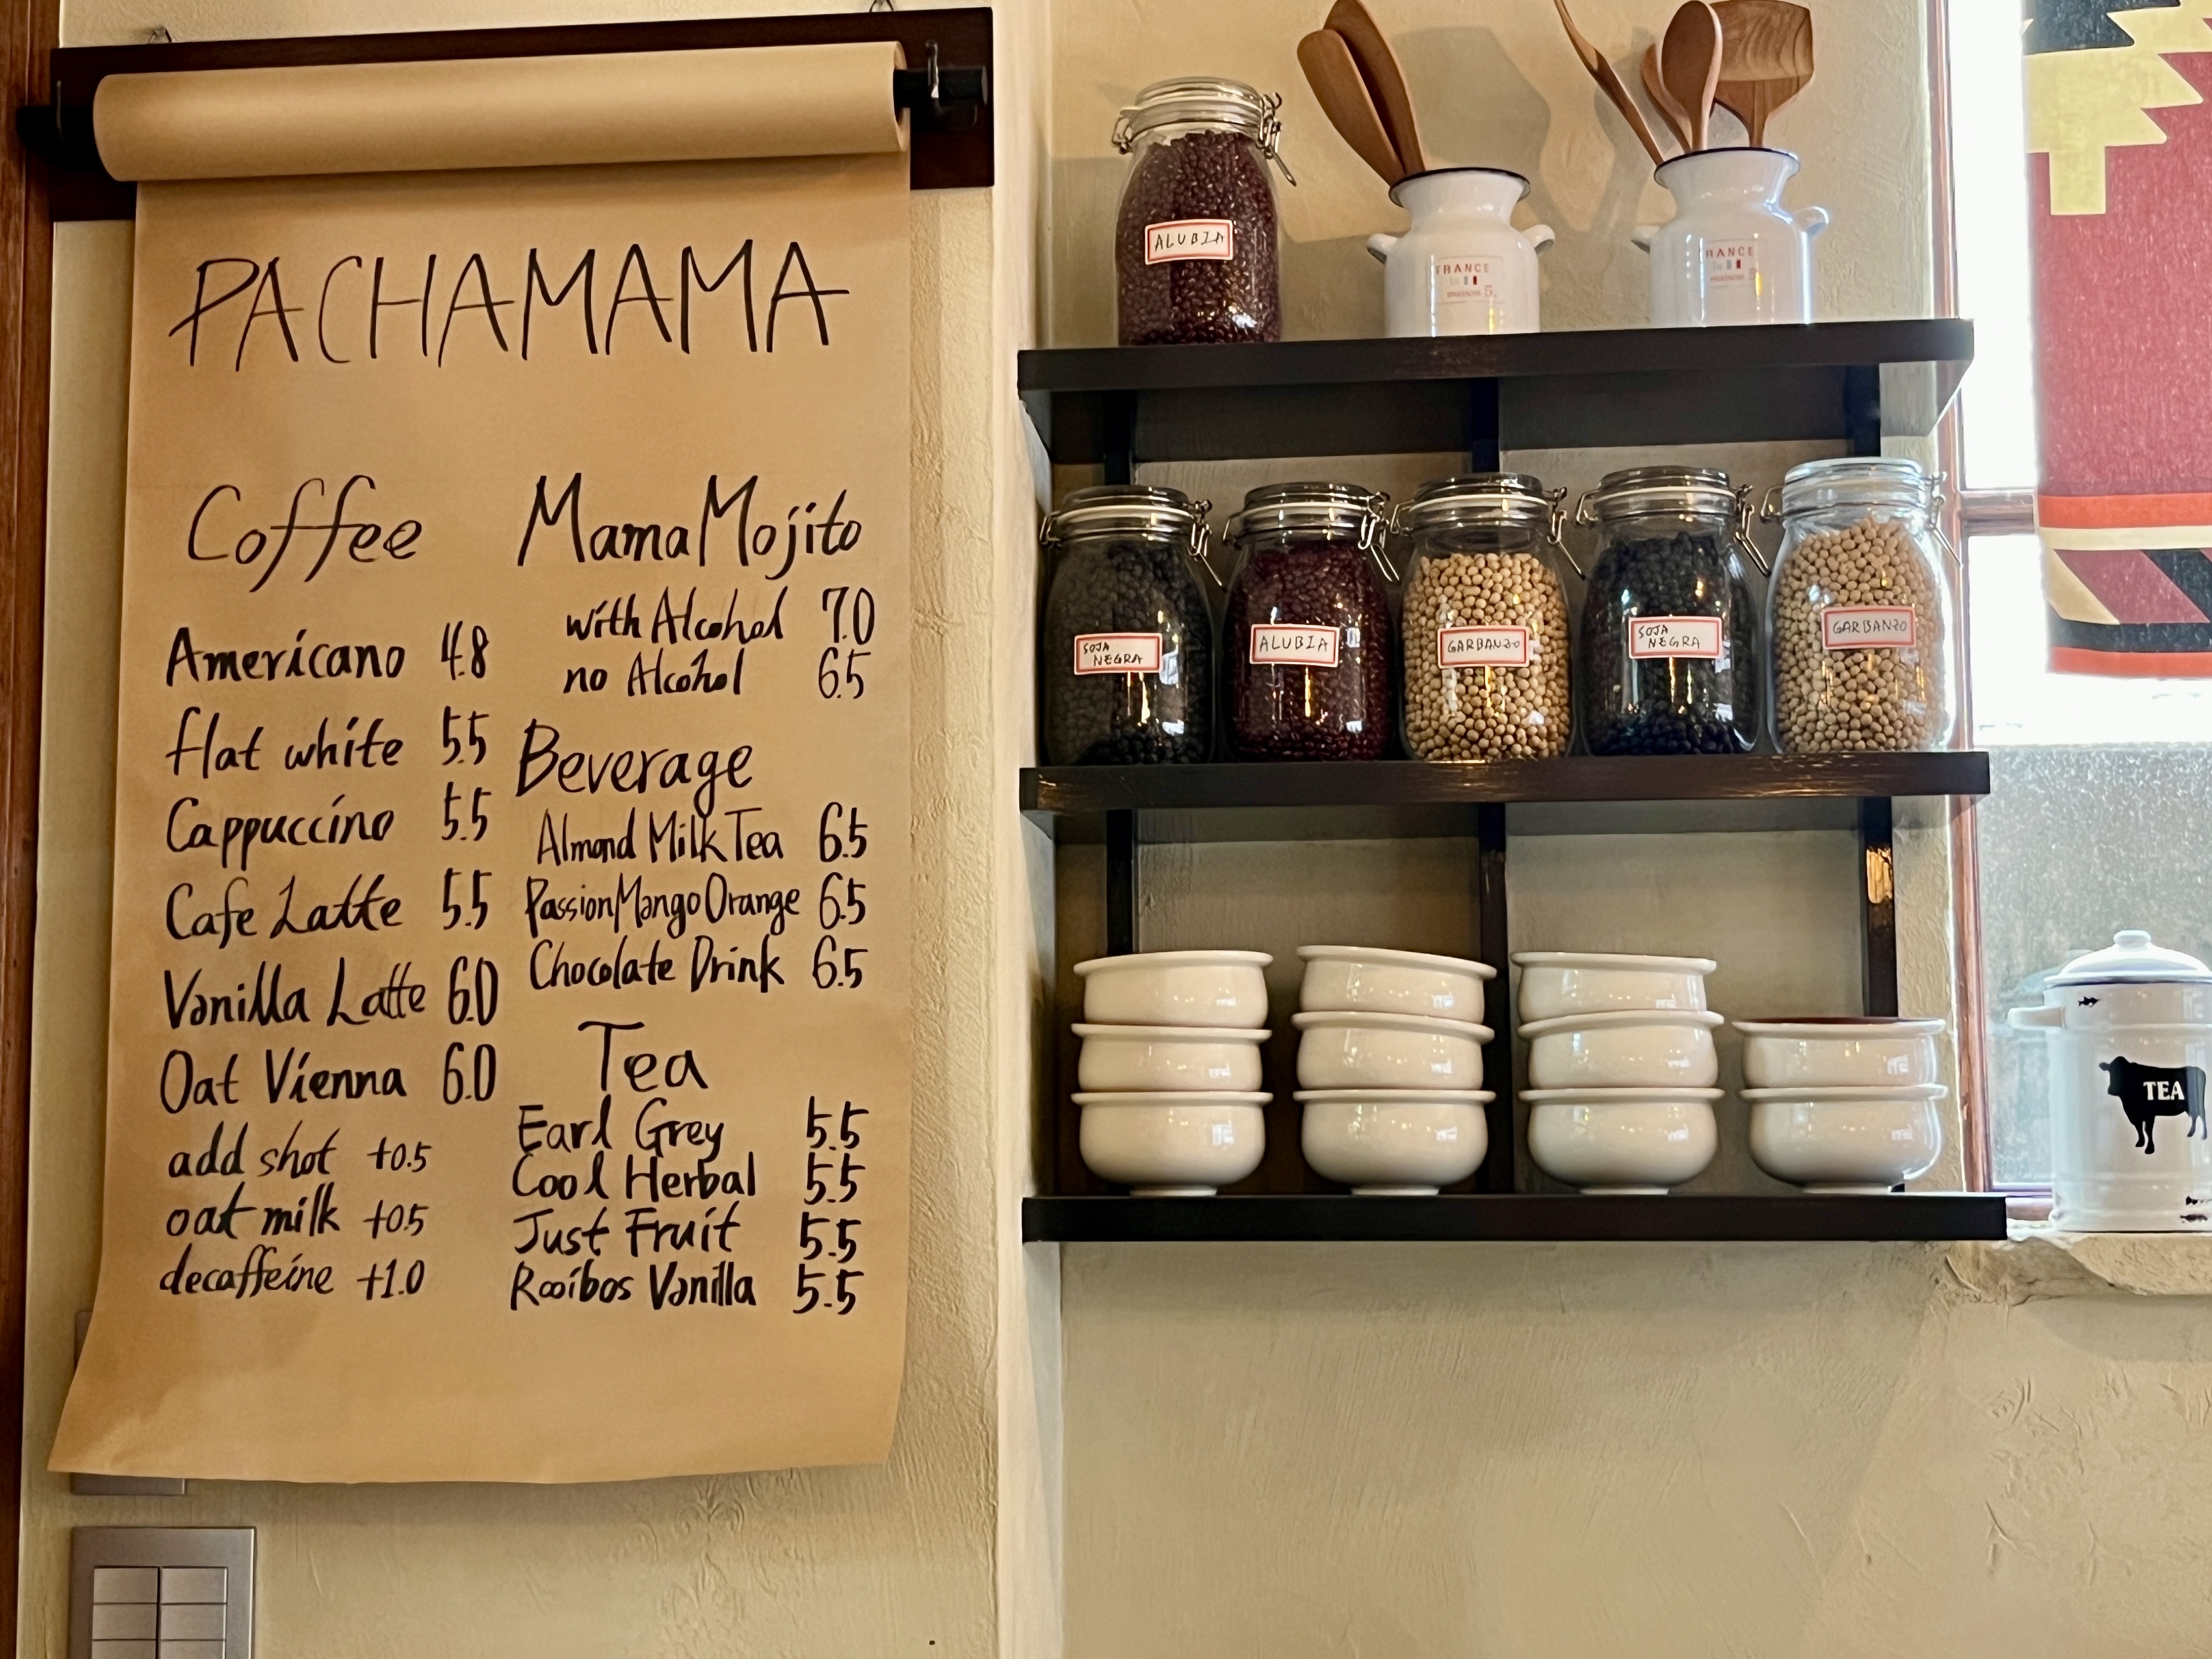 PACHAMAMA
Coffee
Americano 4.8
flat white 5.5
Cappuccino 5.5
Cafe Latte 5.5
Vanilla Latte 6.0
Oat Vienna 6.0
add shot +0.5
oat milk +0.5
decaffeine +1.0
Mama Mojito
with Alcohol 7.0
no Alcohol 6.5
Beverage
Almond Milk Tea 6.5
Passion Mango Orange 6.5
Chocolate Drink 6.5
Tea
Earl Grey 5.5
Cool Herbal 5.5
Just Fruit 5.5
Rooibos Vanilla 5.5
ALUBIA
FRANCE
5
RANCE
SOJA
NEGRA
ALUBIA
GARBANZO
SOJA
NEGRA
GARBANZO
TEA